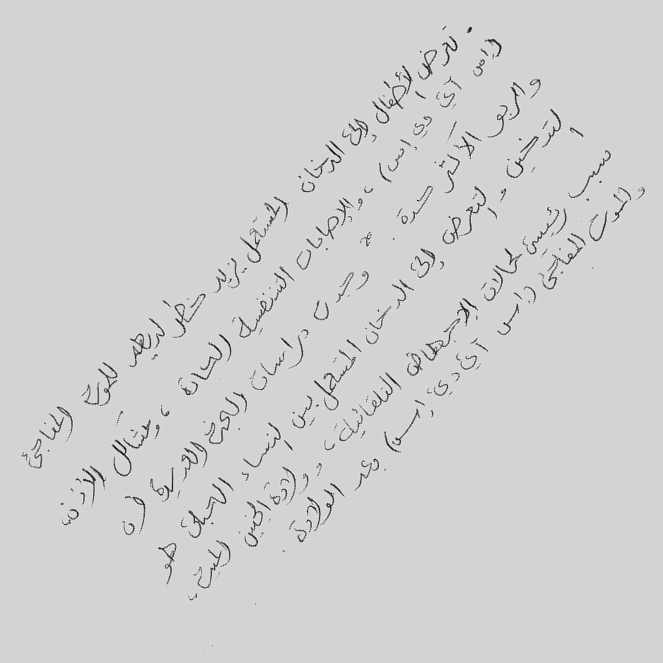 تعرض الأطفال إلى الدخان المستعمل يزيد خطر لديهم للموت المفاجئ
(اس آي دي إس)، والإصابات التنفسية الحادة، ومشاكل الأذن،
والربو الأكثر شدة. وجدت دراسات البحث العديدة أن
التدخين والتعرض إلى الدخان المستعمل بين النساء الحبلى هو
سبب رئيسي لحالات الاجهاض التلقائية، وولادة الجنين الميت،
والموت المفاجئ (اس آي دي إس) بعد الولادة.